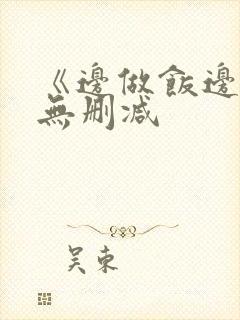 《邊做飯邊
無刪減
吴東